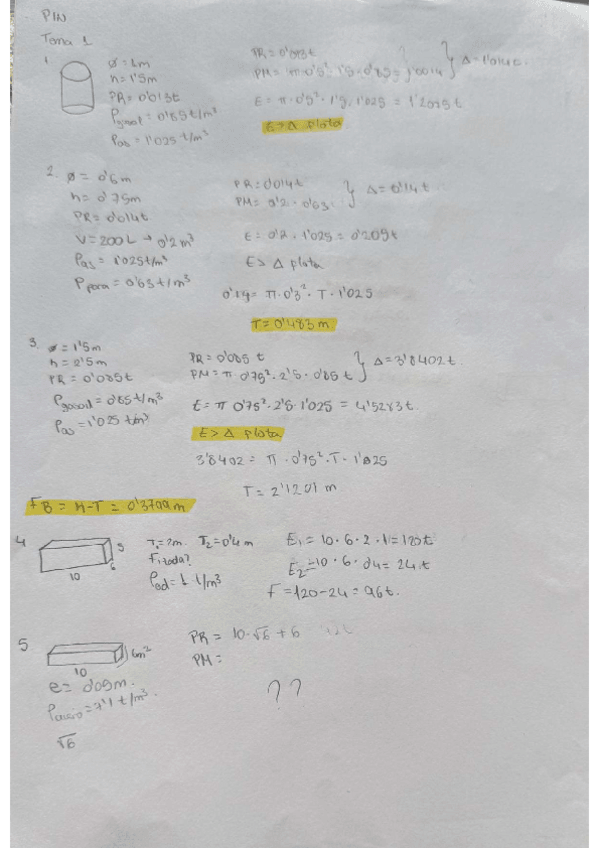 PIN
Tema 1
1 ø = 1m
h = 1'5m
PR = 0'013t
ρgasoil = 0'85 t/m³
ρas = 1'025 t/m³
PR = 0'013t
PM = π·0'5²·1'5·0'85 = 1'0014 } Δ = 1'014t.
E = π·0'5²·1'5·1'025 = 1'2075t
E > Δ flota
2. ø = 0'6m
h = 0'75m
PR = 0'014t
V = 200L → 0'2m³
ρas = 1'025t/m³
ρ = 0'63t/m³
PR = 0'014t
PM = 0'2 · 0'63 } Δ = 0'14t
E = 0'2 · 1'025 = 0'205t
E > Δ flota
0'14 = π·0'3²·T·1'025
T = 0'483 m.
3. ø = 1'5m
h = 2'5m
PR = 0'085t
ρgasoil = 0'85t/m³
ρas = 1'025 t/m³
PR = 0'085 t
PM = π·0'75²·2'5·0'85t } Δ = 3'8402t.
E = π 0'75²·2'5·1'025 = 4'5283t.
E > Δ flota
3'8402 = π·0'75²·T·1'025
T = 2'1201 m
FB = h-T = 0'3799m
4 5
6
10
T₁ = 2m. T₂ = 0'4m
ρad = 1 t/m³
E₁ = 10·6·2·1 = 120t
E₂ = 10·6·0'4 = 24t
F = 120-24 = 96t.
5 6m²
10
e = 0'05m.
ρacero = 7'1 t/m³
√6
PR = 10·√6 + 6
PM =
??